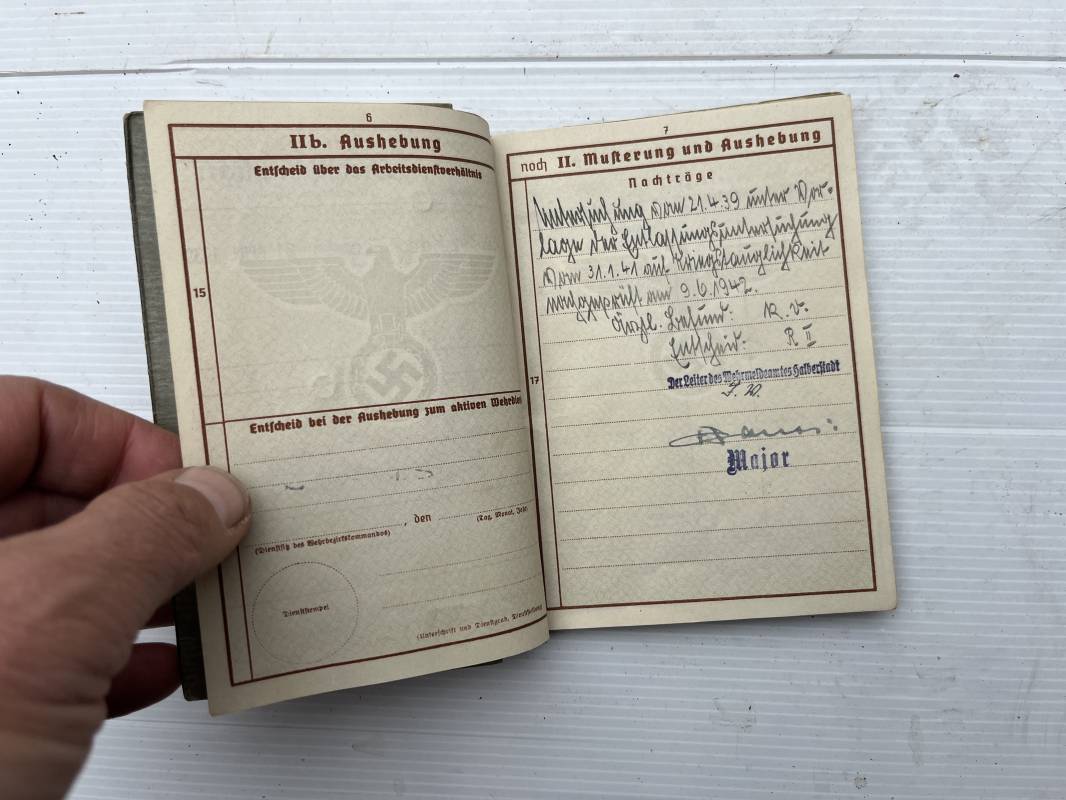 6
IIb. Aushebung
Entscheid über das Arbeitsdienstverhältnis
15
Entscheid bei der Aushebung zum aktiven Wehrdien
, den
(Dienstsitz des Wehrbezirkskommandos)
(Tag, Monat, Jahr)
Dienststempel
(Unterschrift und Dienstgrad, Dienststellung)
7
noch II. Musterung und Aushebung
Nachträge
17
Untersuchung vom 21.4.39 unter Vor-
lage der Entlassungsuntersuchung
vom 31.1.41 auf Kriegstauglichkeit
nachgeprüft am 9.6.1942.
Ärztl. Befund: K.v.
Entscheid: R II
Der Leiter des Wehrmeldeamtes Halberstadt
Major